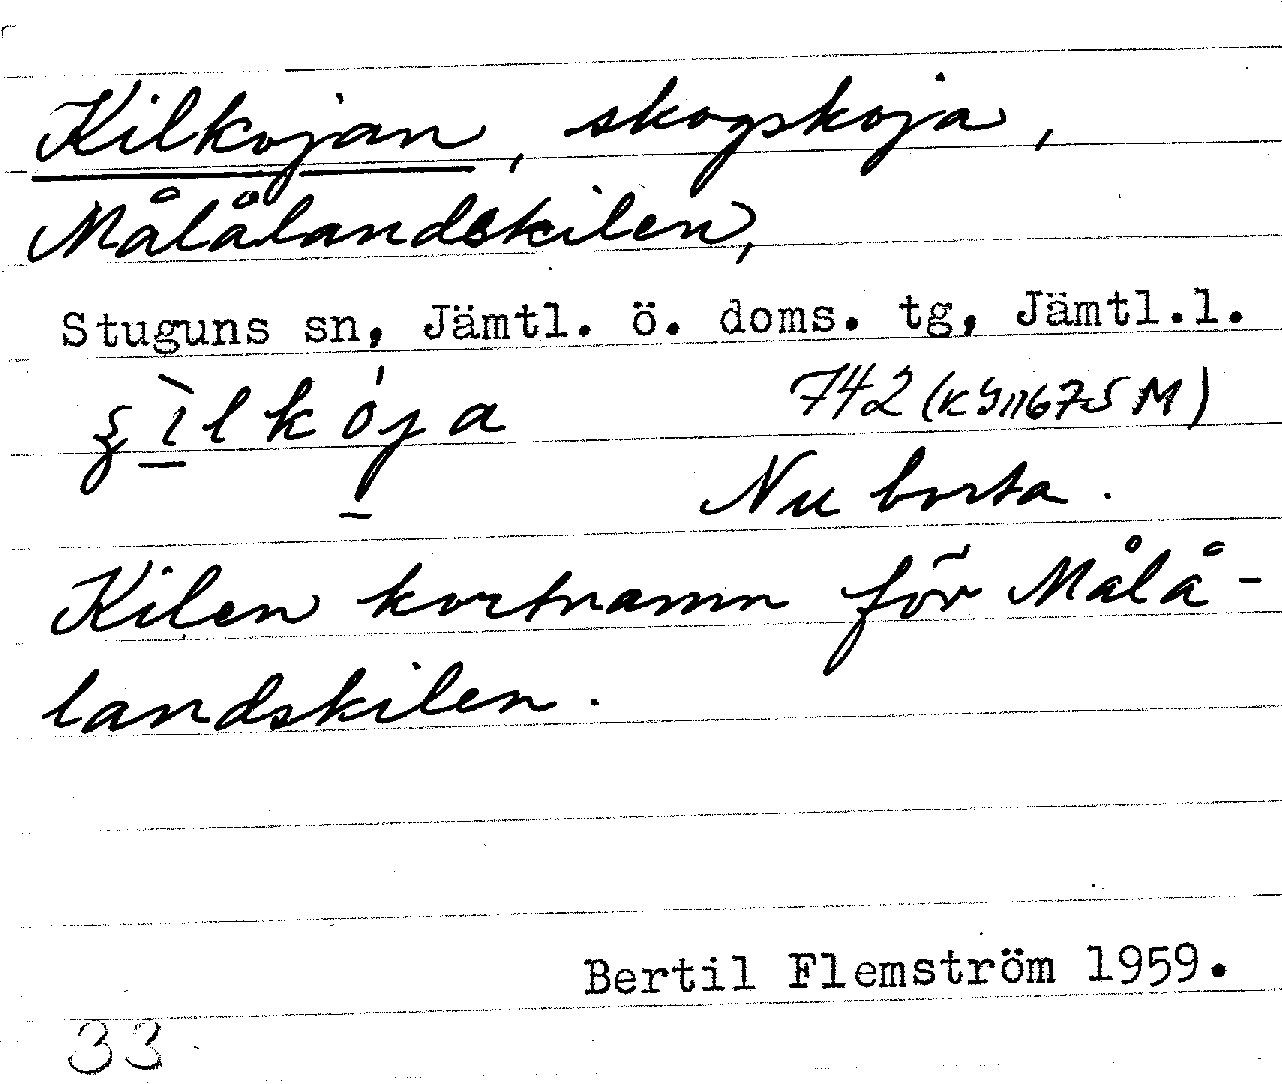 Kilkojan, skogskoja,
Målålandskilen,
Stuguns sn, Jämtl. ö. doms. tg, Jämtl.l.
742 (K Y11675 M)
Nu borta.
Kilen kortnamn för Målå-
landskilen.
Bertil Flemström 1959.
33